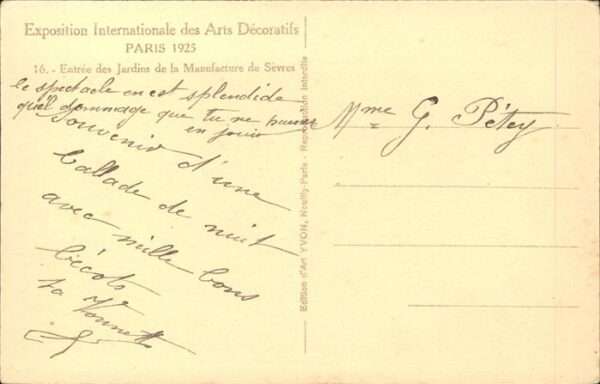 Exposition Internationale des Arts Décoratifs
PARIS 1925
16. - Entrée des Jardins de la Manufacture de Sèvres
le spectacle en est splendide
quel dommage que tu ne puisses
en jouir
Souvenir d'une
ballade de nuit
avec mille bons
bécots
ta
Mme G. Pétey
Edition d'Art YVON, Neuilly-Paris - Reproduction Interdite